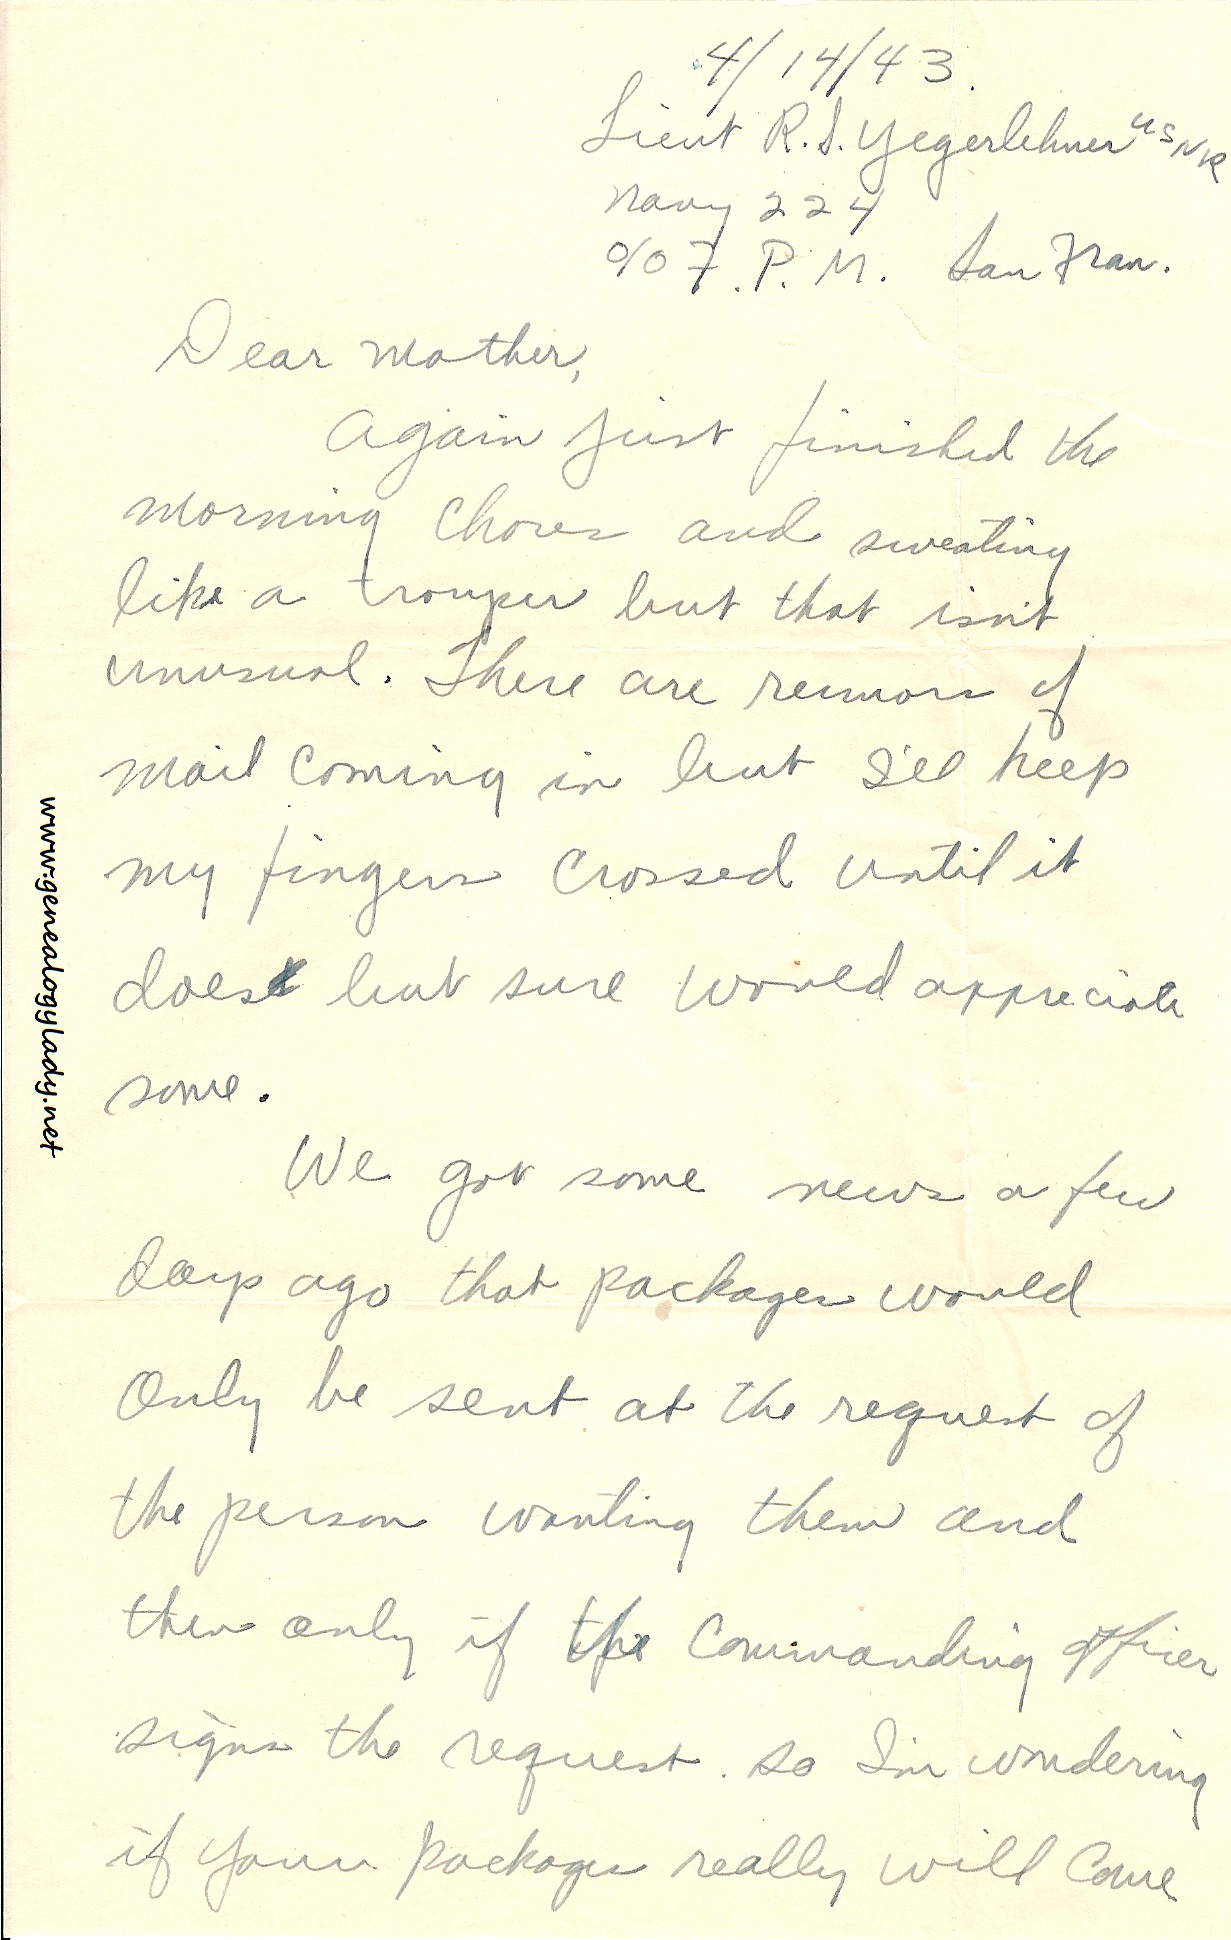 4/14/43.
Lieut R.S. Yegerlehner USNR
Navy 224
c/o F.P.M. San Fran.
Dear Mother,
Again just finished the
morning chores and sweating
like a trouper but that isn't
unusual. There are rumors of
mail coming in but I'll keep
my fingers crossed until it
does but sure would appreciate
some.
We got some news a few
days ago that packages would
only be sent at the request of
the person wanting them and
then only if the commanding officer
signs the request. so I'm wondering
if your packages really will come
www.genealogylady.net